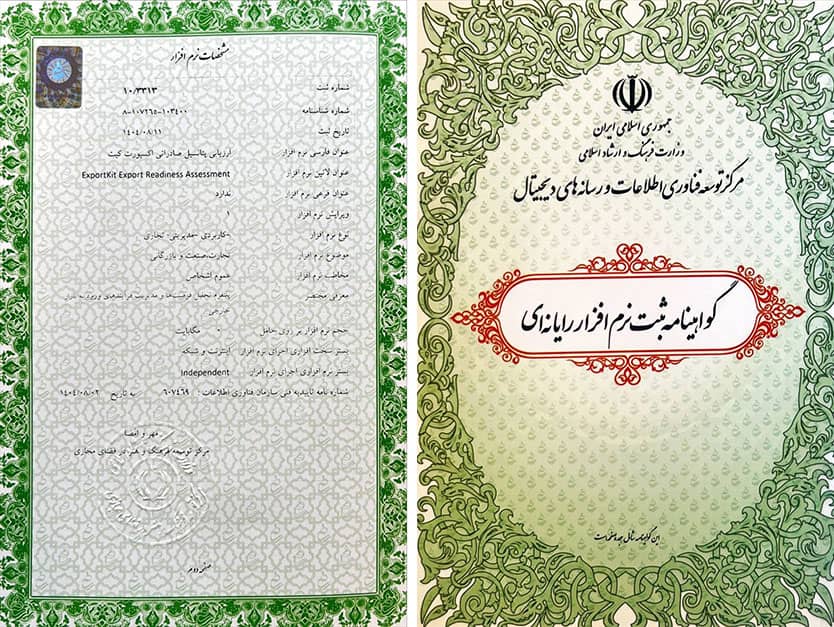 مشخصات نرم افزار
شماره ثبت ۱۰/۳۳۱۳
شماره شناسنامه ۸-۱۰۷۲۶۵-۱۰۳۴۰۰
تاریخ ثبت ۱۴۰۴/۰۸/۱۱
عنوان فارسی نرم افزار ارزیابی پتانسیل صادراتی اکسپورت کیت
عنوان لاتین نرم افزار ExportKit Export Readiness Assessment
عنوان فرعی نرم افزار ندارد
ویرایش نرم افزار ۱
نوع نرم افزار -کاربردی -مدیریتی- تجاری
موضوع نرم افزار تجارت،صنعت و بازرگانی
مخاطب نرم افزار عموم اشخاص
معرفی مختصر پنجره تحلیل فرصت‌ها و مدیریت فرایندهای ورود به بازار
خارجی
حجم نرم افزار بر روی حامل ۰ مگابایت
بستر سخت افزاری اجرای نرم افزار اینترنت و شبکه
بستر نرم افزاری اجرای نرم افزار Independent
شماره نامه تاییدیه فنی سازمان فناوری اطلاعات : ۶۰۷۴۶۹ به تاریخ ۱۴۰۴/۰۸/۰۲
مهر و امضا
مرکز توسعه فرهنگ و هنر در فضای مجازی
صفحه دوم
جمهوری اسلامی ایران
وزارت فرهنگ و ارشاد اسلامی
مرکز توسعه فناوری اطلاعات و رسانه های دیجیتال
گواهینامه ثبت نرم افزار رایانه ای
این گواهینامه شامل صفحه است